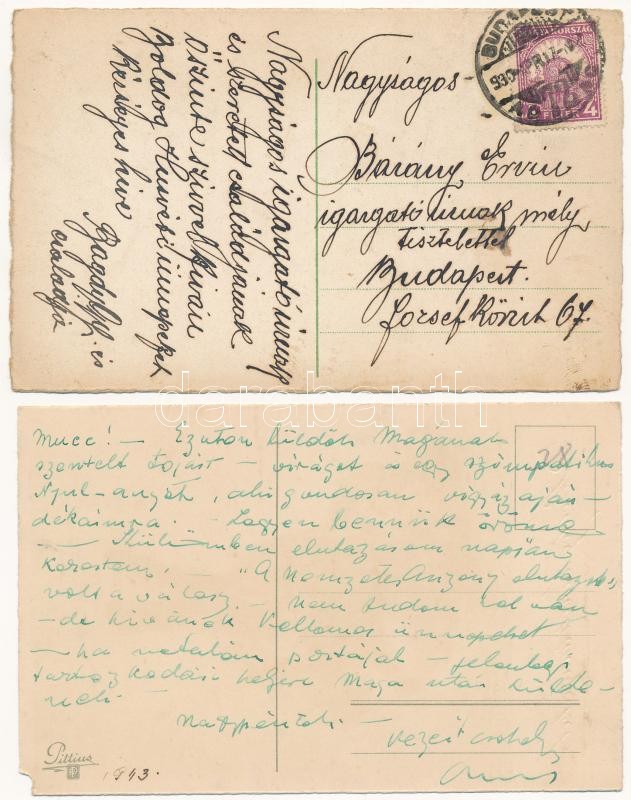 Nagyságos igazgató úrnak
és szeretett családjának
őszinte szivvel kíván
Boldog Húsvéti ünnepeket
Kész hive
és
családja
Nagyságos
Bárány Ervin
igazgató úrnak mély
tisztelettel
Budapest.
József Körút 67.
BUDAPEST
930
4
darabanth
Mucc! — Ezúton küldök Magának
szentelt tojást — virágot és egy szimpatikus
Nyúl-anyót, aki gondosan vigyáz aján-
dékaimra. — Legyen bennük öröme
— Különben elutazásom napján
kerestem. — "A Nemzetes Asszony elutazott"
volt a válasz. — Nem tudom hol van
— de kívánok Kellemes ünnepeket
— ha netalán postáját — jelenlegi
tartózkodási helyére Maga után külde-
nék —
Nagypéntek —
28
Pittius
1943.